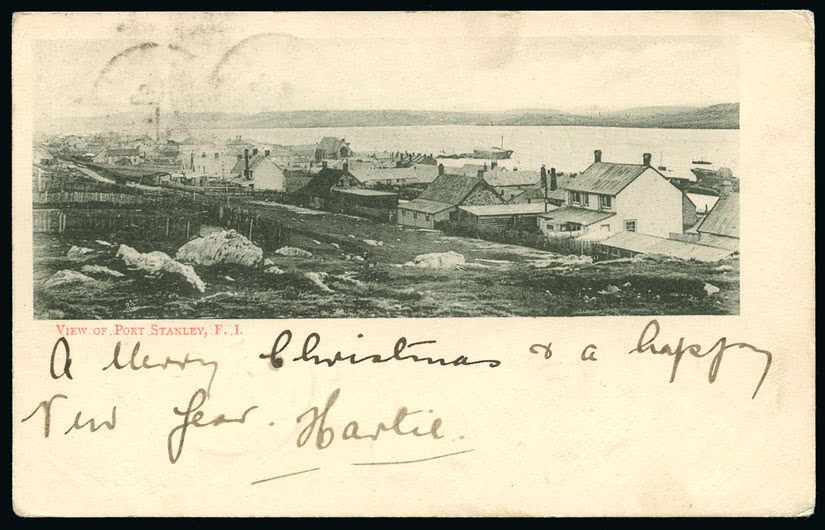 VIEW OF PORT STANLEY, F. I.
A Merry Christmas & a happy
New Year. Hartie.